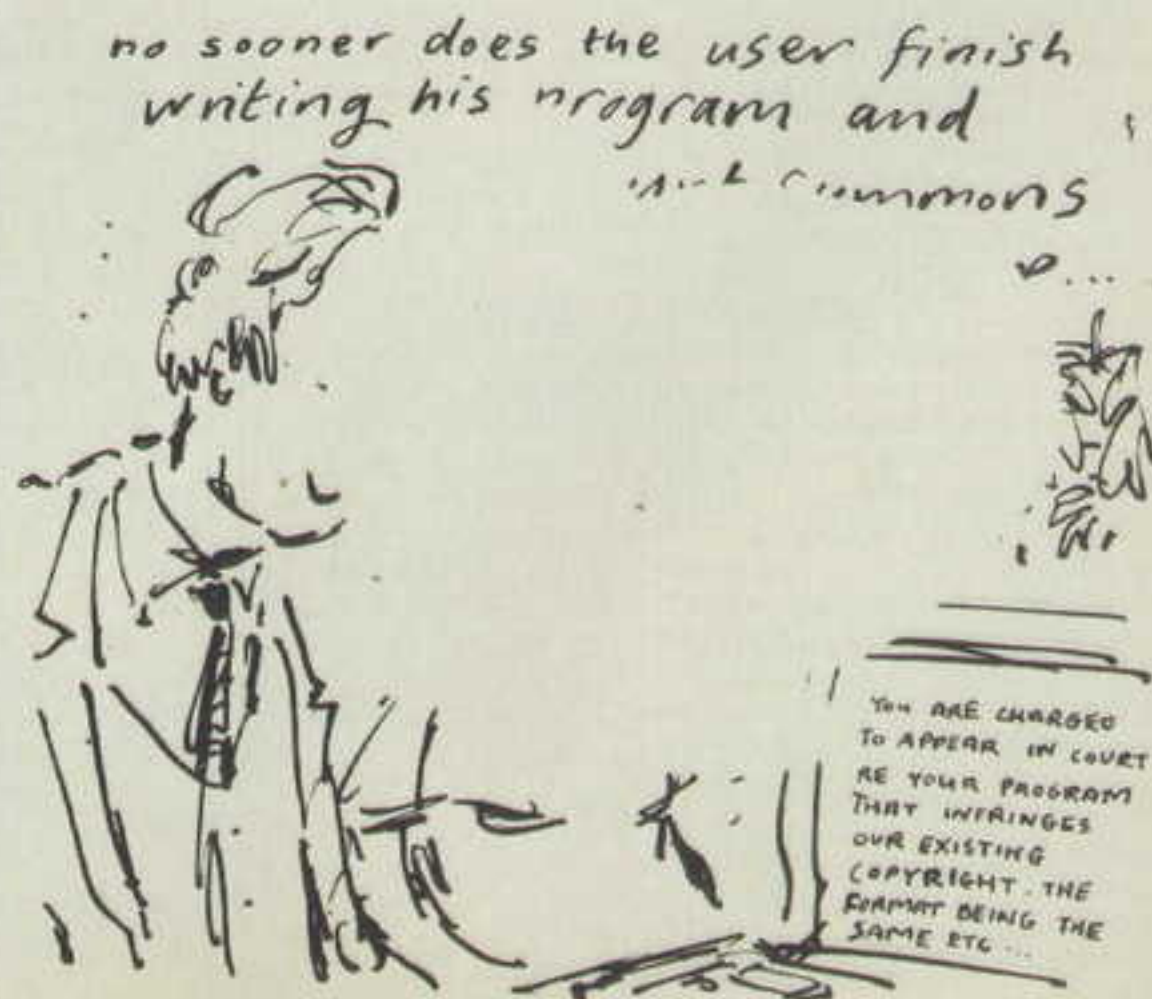 no sooner does the user finish
writing his program and
YOU ARE CHARGED
TO APPEAR IN COURT
RE YOUR PROGRAM
THAT INFRINGES
OUR EXISTING
COPYRIGHT. THE
FORMAT BEING THE
SAME ETC...